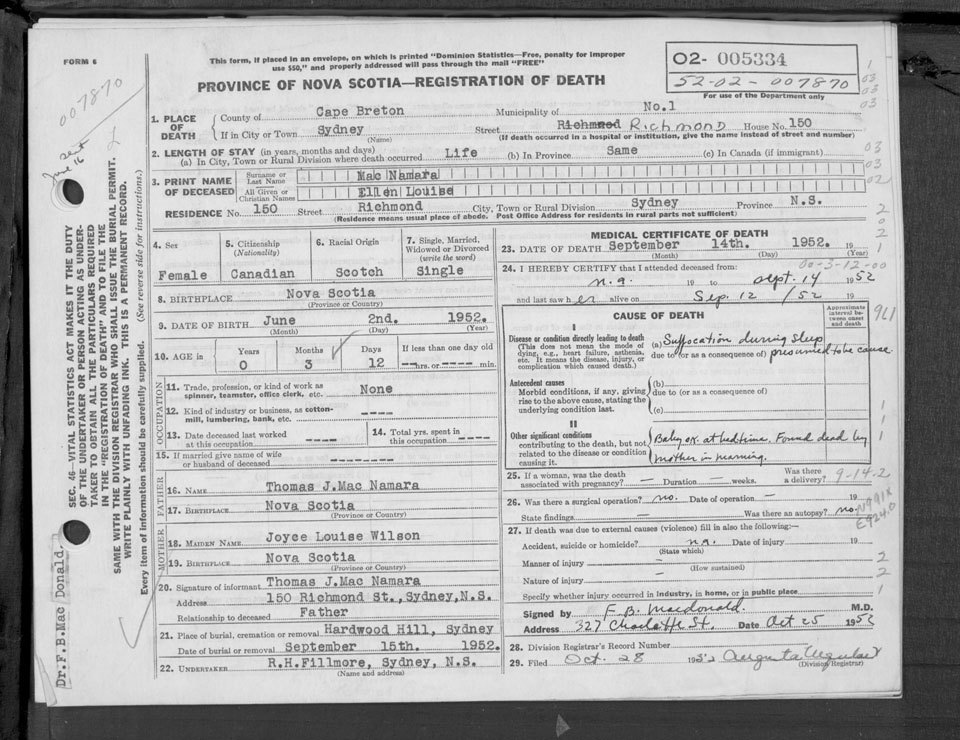 FORM 6
This form, if placed in an envelope, on which is printed "Dominion Statistics—Free, penalty for improper
use $50," and properly addressed will pass through the mail "FREE"
PROVINCE OF NOVA SCOTIA—REGISTRATION OF DEATH
02- 005334
52-02-007870
For use of the Department only
007870
Sent June 16
SEC. 46—VITAL STATISTICS ACT MAKES IT THE DUTY
OF THE UNDERTAKER OR PERSON ACTING AS UNDER-
TAKER TO OBTAIN ALL THE PARTICULARS REQUIRED
IN THE "REGISTRATION OF DEATH" AND TO FILE THE
SAME WITH THE DIVISION REGISTRAR WHO SHALL ISSUE THE BURIAL PERMIT.
WRITE PLAINLY WITH UNFADING INK. THIS IS A PERMANENT RECORD.
Every item of information should be carefully supplied. (See reverse side for instructions.)
Dr.F.B.Mac Donald.
1. PLACE OF DEATH
County of Cape Breton Municipality of No.1
If in City or Town Sydney Street Richmond Richmond House No. 150
(Name) (If death occurred in a hospital or institution, give the name instead of street and number)
2. LENGTH OF STAY (in years, months and days)
(a) In City, Town or Rural Division where death occurred Life (b) In Province Same (c) In Canada (if immigrant)
3. PRINT NAME OF DECEASED
Surname or Last Name Mac Namara
All Given or Christian Names Ellen Louise
RESIDENCE No. 150 Street Richmond City, Town or Rural Division Sydney Province N.S.
(Residence means usual place of abode. Post Office Address for residents in rural parts not sufficient)
4. Sex Female
5. Citizenship (Nationality) Canadian
6. Racial Origin Scotch
7. Single, Married, Widowed or Divorced (write the word) Single
8. BIRTHPLACE Nova Scotia
(Province or Country)
9. DATE OF BIRTH June 2nd. 1952.
(Month) (Day) (Year)
10. AGE in Years 0 Months 3 Days 12 If less than one day old hrs. or min.
OCCUPATION
11. Trade, profession, or kind of work as
spinner, teamster, office clerk, etc. None
12. Kind of industry or business, as cotton-
mill, lumbering, bank, etc. ----
13. Date deceased last worked
at this occupation ----
14. Total yrs. spent in
this occupation ----
15. If married give name of wife
or husband of deceased -----
FATHER
16. NAME Thomas J.Mac Namara
17. BIRTHPLACE Nova Scotia
(Province or Country)
MOTHER
18. MAIDEN NAME Joyce Louise Wilson
19. BIRTHPLACE Nova Scotia
(Province or Country)
20. Signature of informant Thomas J.Mac Namara
Address 150 Richmond St.,Sydney,N.S.
Relationship to deceased Father
21. Place of burial, cremation or removal Hardwood Hill, Sydney
Date of burial or removal September 15th. 1952.
22. UNDERTAKER R.H.Fillmore, Sydney, N.S.
(Name and address)
MEDICAL CERTIFICATE OF DEATH
23. DATE OF DEATH September 14th. 1952. 19
(Month) (Day) (Year)
00-3-12-00
24. I HEREBY CERTIFY that I attended deceased from:
n.a. 19 to Sept. 14 1952
and last saw her alive on Sep. 12 /52 19
CAUSE OF DEATH
Approximate interval between onset and death
I
Disease or condition directly leading to death
(This does not mean the mode of
dying, e.g., heart failure, asthenia,
etc. It means the disease, injury, or
complication which caused death.)
(a) Suffocation during sleep
due to (or as a consequence of) presumed to be cause
Antecedent causes
Morbid conditions, if any, giving
rise to the above cause, stating the
underlying condition last.
(b)
due to (or as a consequence of)
(c)
II
Other significant conditions
contributing to the death, but not
related to the disease or condition
causing it.
Baby ok. at bedtime. Found dead by
mother in morning.
25. If a woman, was the death
associated with pregnancy? — Duration — weeks. Was there a delivery? —
9-14-2
26. Was there a surgical operation? no. Date of operation — 19
State findings — Was there an autopsy? no.
N991X
E924.0
27. If death was due to external causes (violence) fill in also the following:—
Accident, suicide or homicide? n.a. Date of injury 19
(State which)
Manner of injury —
(How sustained)
Nature of injury —
Specify whether injury occurred in industry, in home, or in public place
Signed by F. B. Macdonald. M.D.
Address 327 Charlotte St. Date Oct 25 1952
28. Division Registrar's Record Number
29. Filed Oct. 28 1952 Augusta
(Division Registrar)